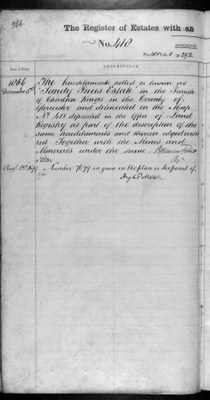 266
The Register of Estates with an
No. 410
DESCRIPTION
1866 The hereditaments called or known as
December "Sandy Trees Estate" in the Parish
of Charlton Kings in the County of
Gloucester and delineated in the Map
No. deposited in the Office of Land
Registry as part of the description of the
same hereditaments and thereon edged with
red Together with the Mines and
Minerals under the same.
Number 7699 in green on the plan is disposed of.